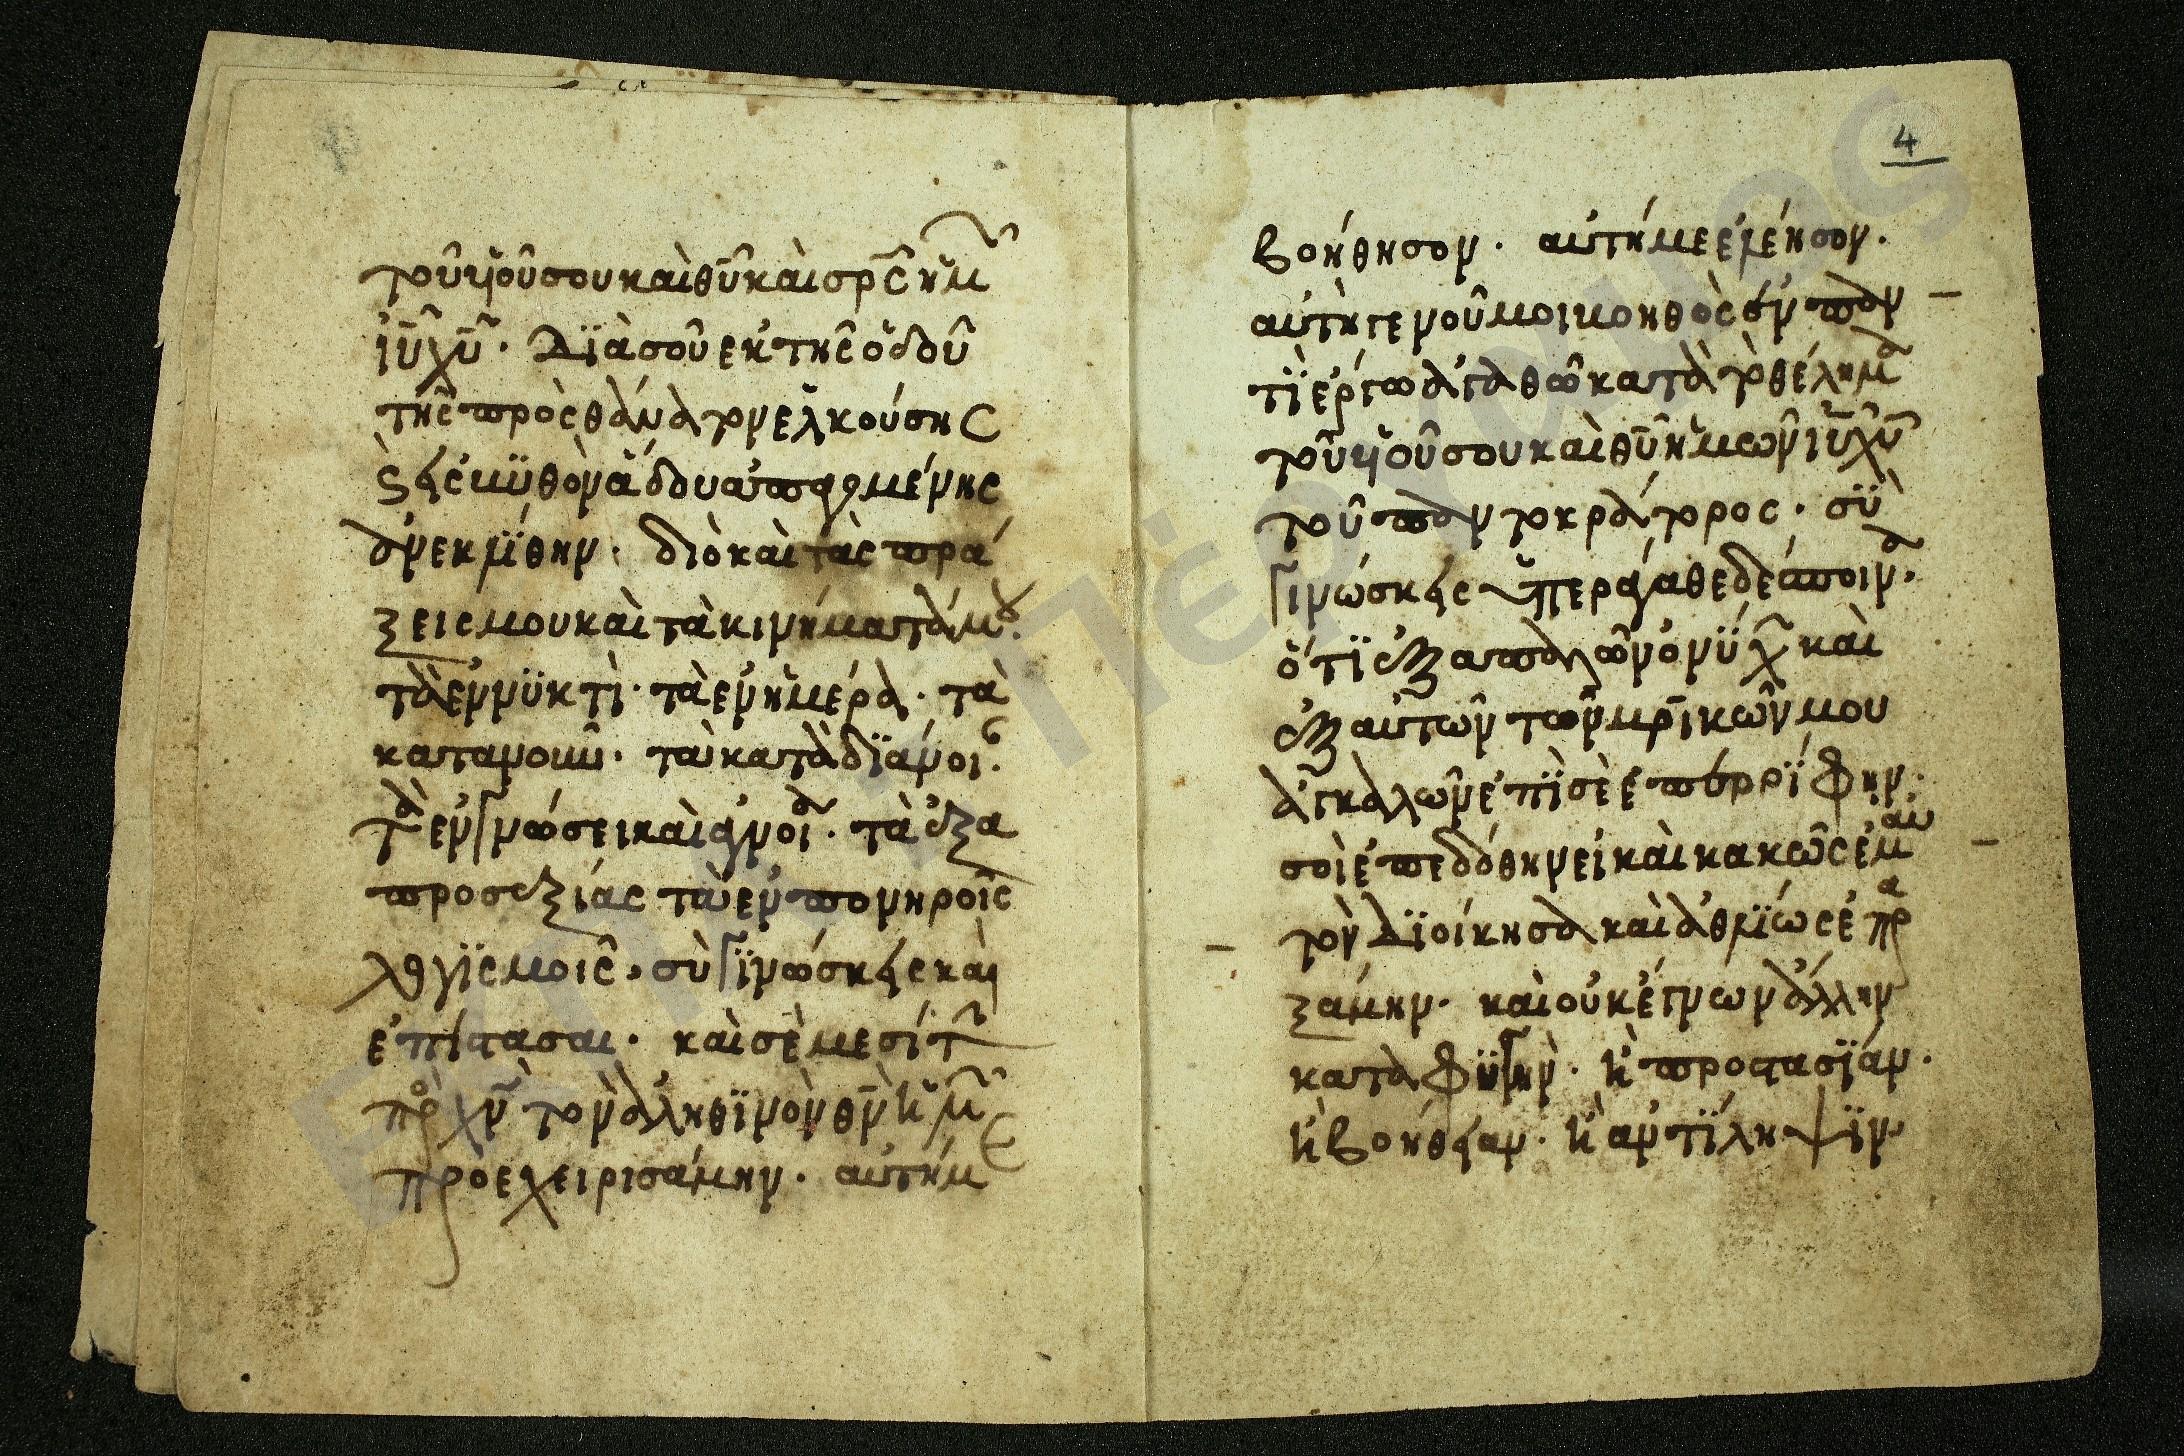 τοῦ υἱοῦ σου καὶ θῡ καὶ σρ̅ς ἡμ
ιῡ χῡ· Διὰ σοῦ ἐκ τῆς ὁδοῦ
τῆς πρὸς θάνατον ἑλκούσης
καὶ εἰς κϋθὸν ἅδου ἀποφερομένης
ἀνεκλίθην· διὸ καὶ τὰς πρά
ξεις μου καὶ τὰ κινήματά μου·
τὰ ἐν νϋκτὶ· τὰ ἐν ἡμέρα· τὰ
κατα νοῦν· τὰ κατὰ διάνοι·
τὰ ἐν γνώσει καὶ ἀγνοία· τὰ ἐξ ἀ
προσεξίας τὰ ἐν πονηροῖς
λογϊσμοις· σὺ γϊνώσκεις καὶ
ἐπίστασαι· καὶ σὲ μεσίτ
πρὸς χν̅ τὸν ἀληθϊνὸν θν̅ ἡμ
προεχειρισάμην· αὐτή με
4
βοήθησον· αὐτή με ἐλέησον·
αὐτὴ γενοῦ μοι βοηθὸς ἐν παν
τὶ ἔργω ἀγαθῶ κατὰ τὸ θέλημα
τοῦ υἱοῦ σου καὶ θῡ ἡμῶν ιῡ χῡ
τοῦ παντοκράτορος· σϋ
γινώσκεις ὑπεράγαθε δέσποινα·
ὅτϊ ἐξ ἁπαλῶν ὀνύχ καὶ
ἐξ αὐτῶν τῶν μρ̅ικῶν μου
ἀγκαλῶν ἐπὶ σὲ ἐπερρίφην·
σοὶ ἐπεδόθην εἰ καὶ κακῶς ἐμαυ
τὸν Διοίκησα καὶ ἀθλϊως ἔπρα
ξάμην· καὶ οὐκ ἔγνων ἄλλην
καταφϋγὴν· ἢ προστασίαν·
ἢ βοήθειαν· ἢ ἀντίληψϊν
Εκπλη Πέργαμος